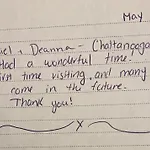 May
+ Deanna - Chattanooga
Had a wonderful time.
first time visiting, and many
come in the future.
Thank you!
x